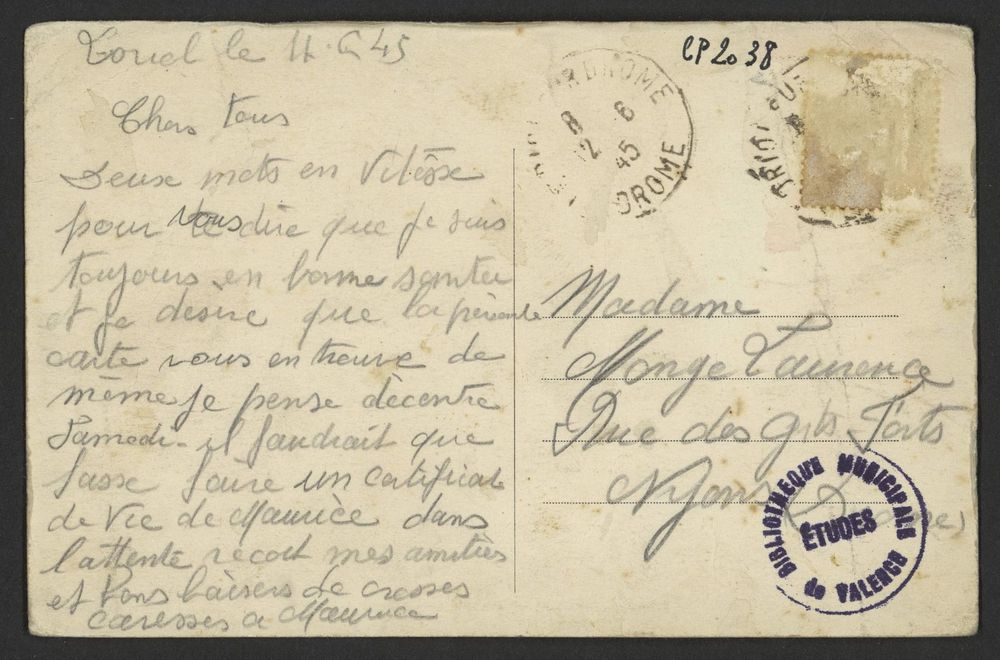 le 11.6.45
Chers tous
Deux mots en Vitesse
pour vous dire que je suis
toujours en bonne santée
et je désire que la présente
carte vous en treuve de
même je pense décentre
Samedi - il faudrait que
fasse faire un certificat
de Vie de Maurice dans
l'attente récoit mes amitiès
et bons baisers de grosses
caresses a Maurice
CP2038
DROME
8
12 6
45
DROME
Madame
Monge Laurence
Rue des Gds Forts
Nyons
BIBLIOTHEQUE MUNICIPALE
ÉTUDES
de VALENCE